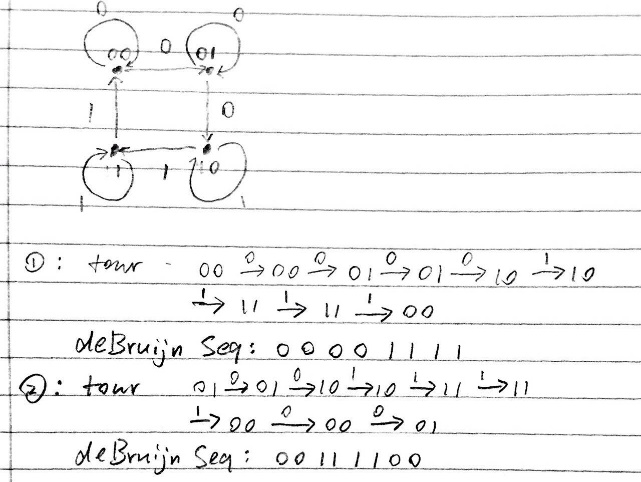 0 0
00 0 01
1 0
11 1 10
1 1
①: tour 00 0→ 00 0→ 01 0→ 01 0→ 10 1→ 10
1→ 11 1→ 11 1→ 00
deBruijn Seq: 0 0 0 0 1 1 1 1
②: tour 01 0→ 01 0→ 10 1→ 10 1→ 11 1→ 11
1→ 00 0→ 00 0→ 01
deBruijn Seq: 0 0 1 1 1 1 0 0